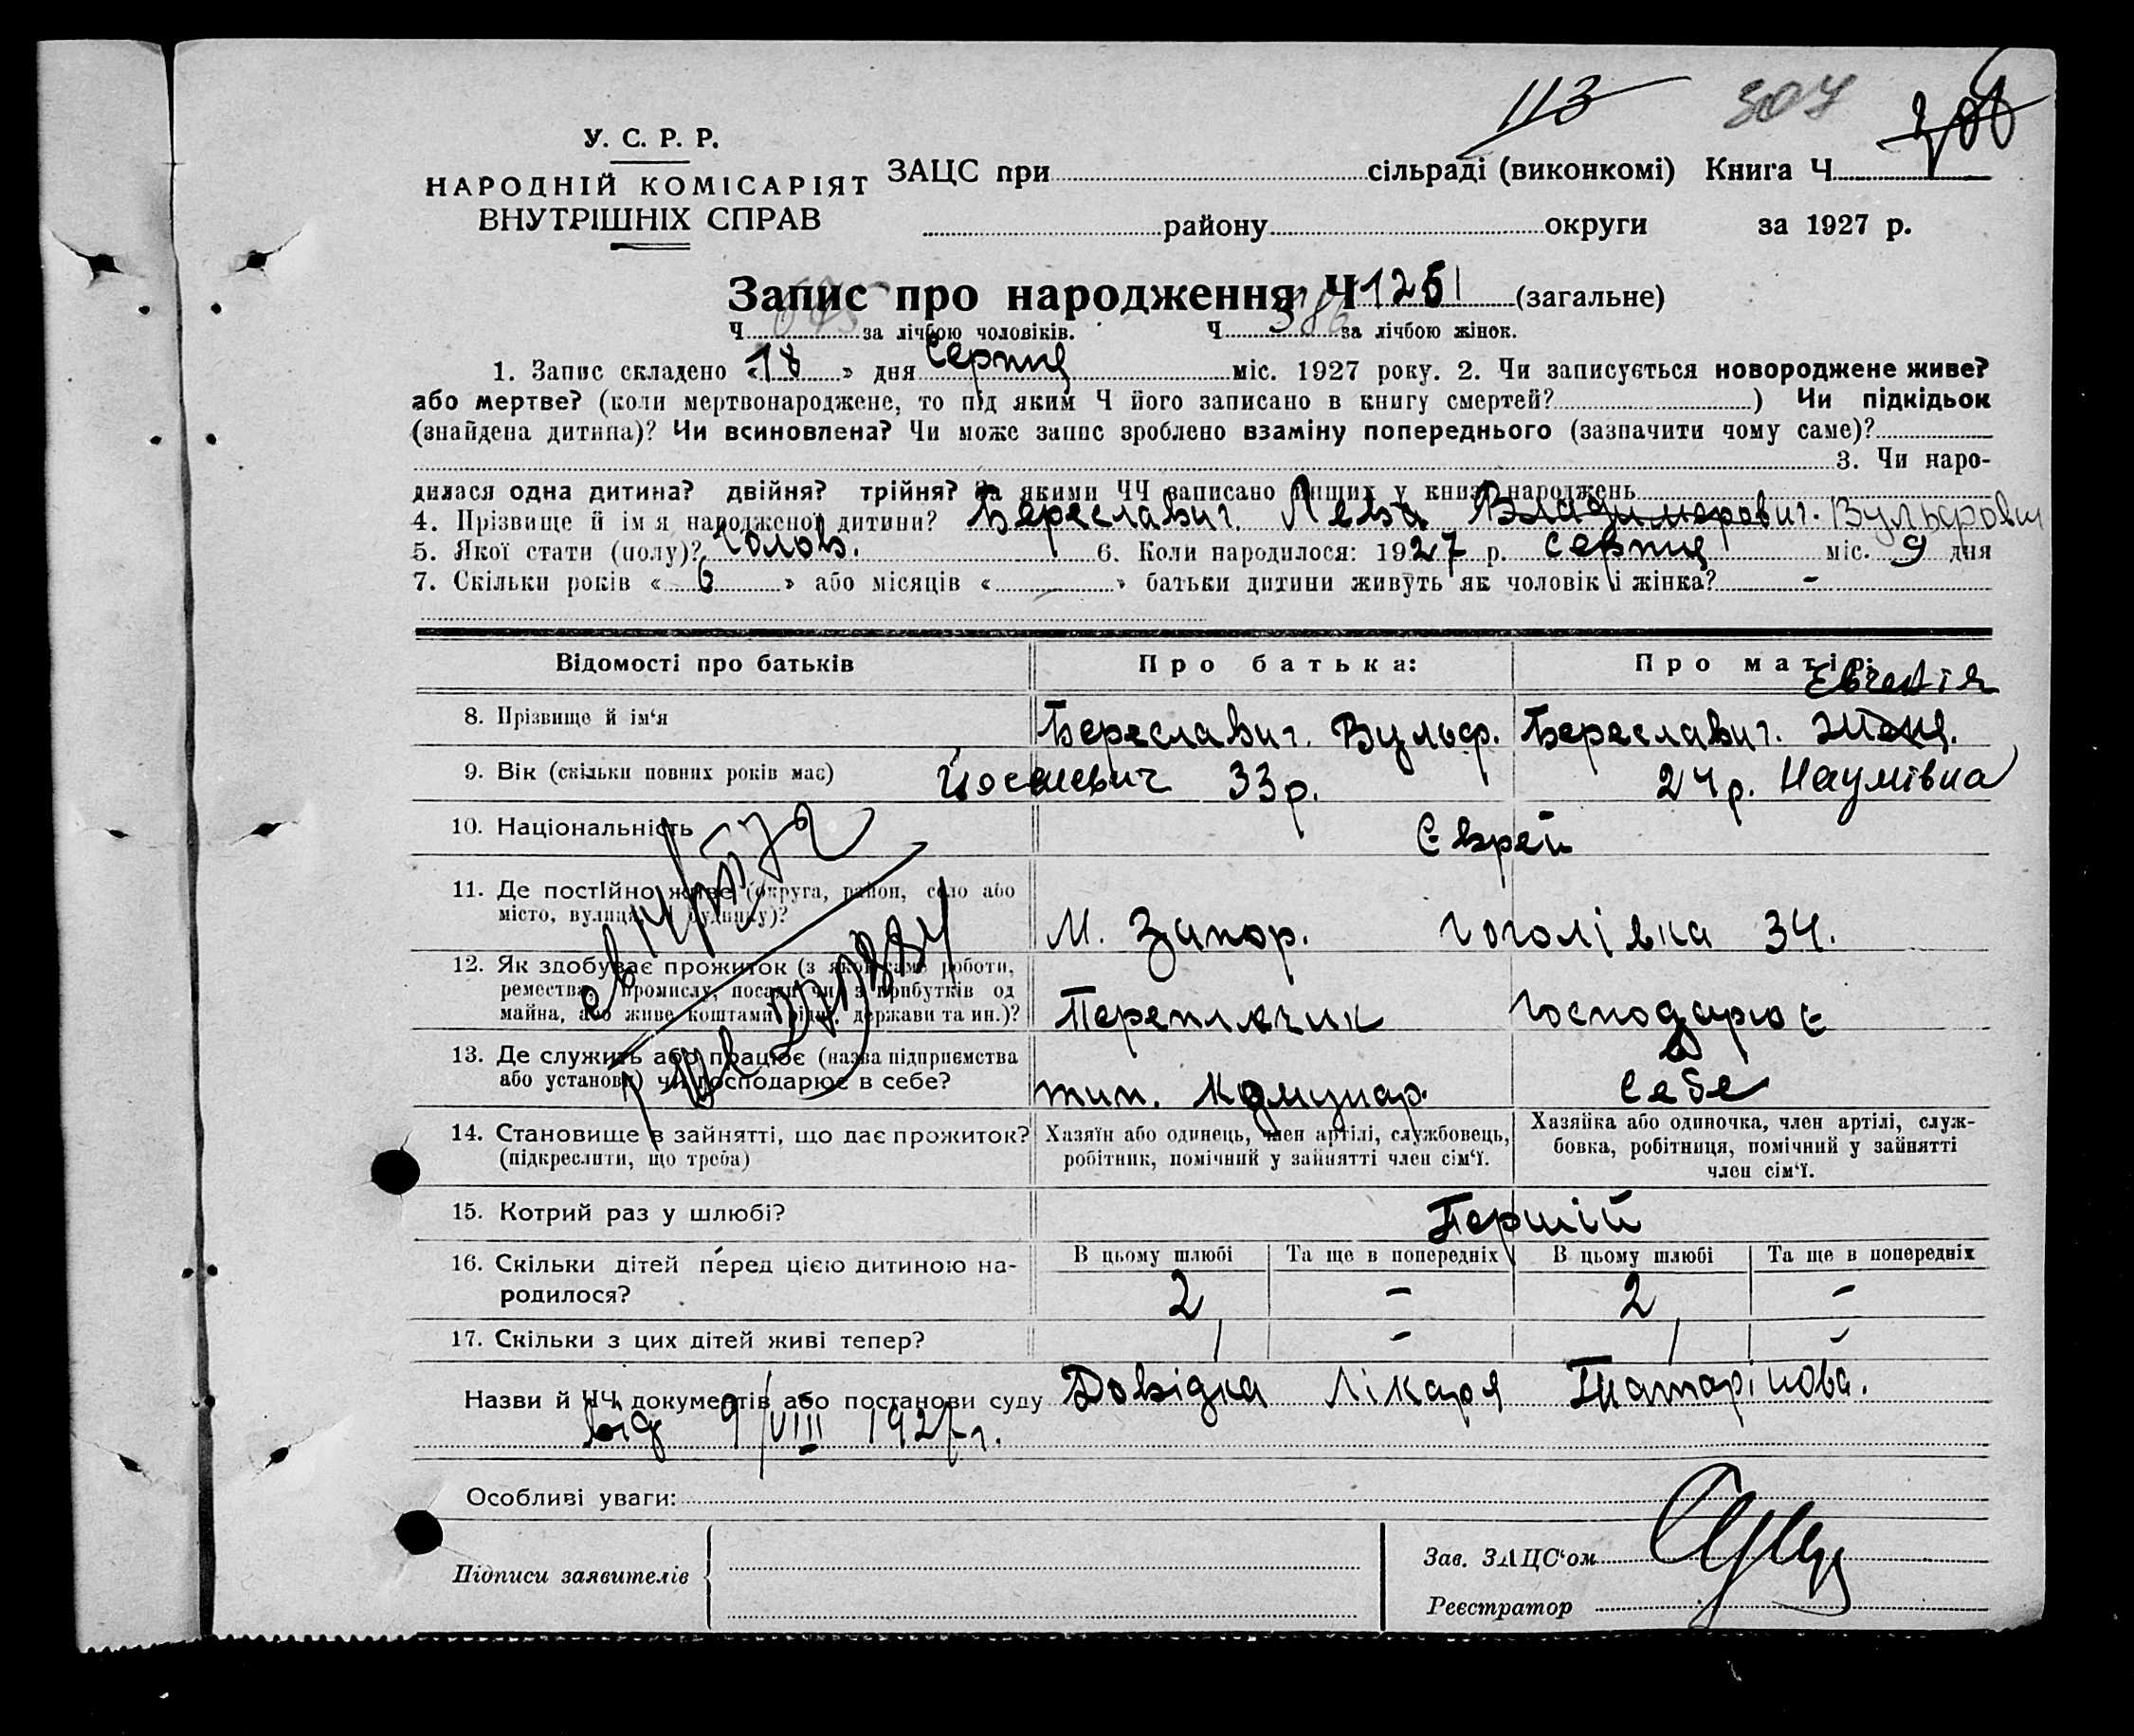 113 307
У. С. Р. Р.
НАРОДНІЙ КОМІСАРІЯТ
ВНУТРІШНІХ СПРАВ
ЗАЦС при сільраді (виконкомі) Книга Ч
району округи за 1927 р.
Запис про народження Ч 1251 (загальне)
Ч за лічбою чоловіків. Ч 586 за лічбою жінок.
1. Запис складено «18» дня Серпня міс. 1927 року. 2. Чи записується новороджене живе?
або мертве? (коли мертвонароджене, то під яким Ч його записано в книгу смертей?) Чи підкідьок
(знайдена дитина)? Чи всиновлена? Чи може запис зроблено взаміну попереднього (зазначити чому саме)?
3. Чи наро-
дилася одна дитина? двійня? трійня? За якими ЧЧ записано инших у книзі народжень
4. Прізвище й ім я народженої дитини? Береславич. Лева Владимирович. Вульфович
5. Якої стати (полу)? Чолов. 6. Коли народилося: 1927 р. серпня міс. 9 дня
7. Скільки років «6» або місяців « » батьки дитини живуть як чоловік і жінка? -
Відомості про батьків Про батька: Про матір:
Євгенія
8. Прізвище й ім‘я Береславич. Вульф. Береславич.
9. Вік (скільки повних років має) 33р. 24р. Наумівна
10. Національність Єврей
11. Де постійно живе (округа, район, село або
місто, вулиця, Ч будинку)?
М. Запор. Гоголівка 34.
12. Як здобуває прожиток (з якої саме роботи,
ремества, промислу, посади чи з прибутків од
майна, або живе коштами рідні, держави та ин.)?
Переплячик Господарює
13. Де служить або працює (назва підприємства
або установи) чи господарює в себе?
тип. Комунар. в Себе
14. Становище в зайнятті, що дає прожиток?
(підкреслити, що треба)
Хазяїн або одинець, член артілі, службовець,
робітник, помічний у зайнятті член сім‘ї.
Хазяйка або одиночка, член артілі, служ-
бовка, робітниця, помічний у зайнятті
член сім‘ї.
15. Котрий раз у шлюбі? Першій
16. Скільки дітей перед цією дитиною на-
родилося?
В цьому шлюбі Та ще в попередніх В цьому шлюбі Та ще в попередніх
2 - 2 -
17. Скільки з цих дітей живі тепер? 1 - 1 -
Назви й ЧЧ документів або постанови суду Довідка Лікаря Татарінова.
від 9/VIII 1927 г.
Особливі уваги:
Підписи заявителів
Зав. ЗАЦС‘ом
Реєстратор